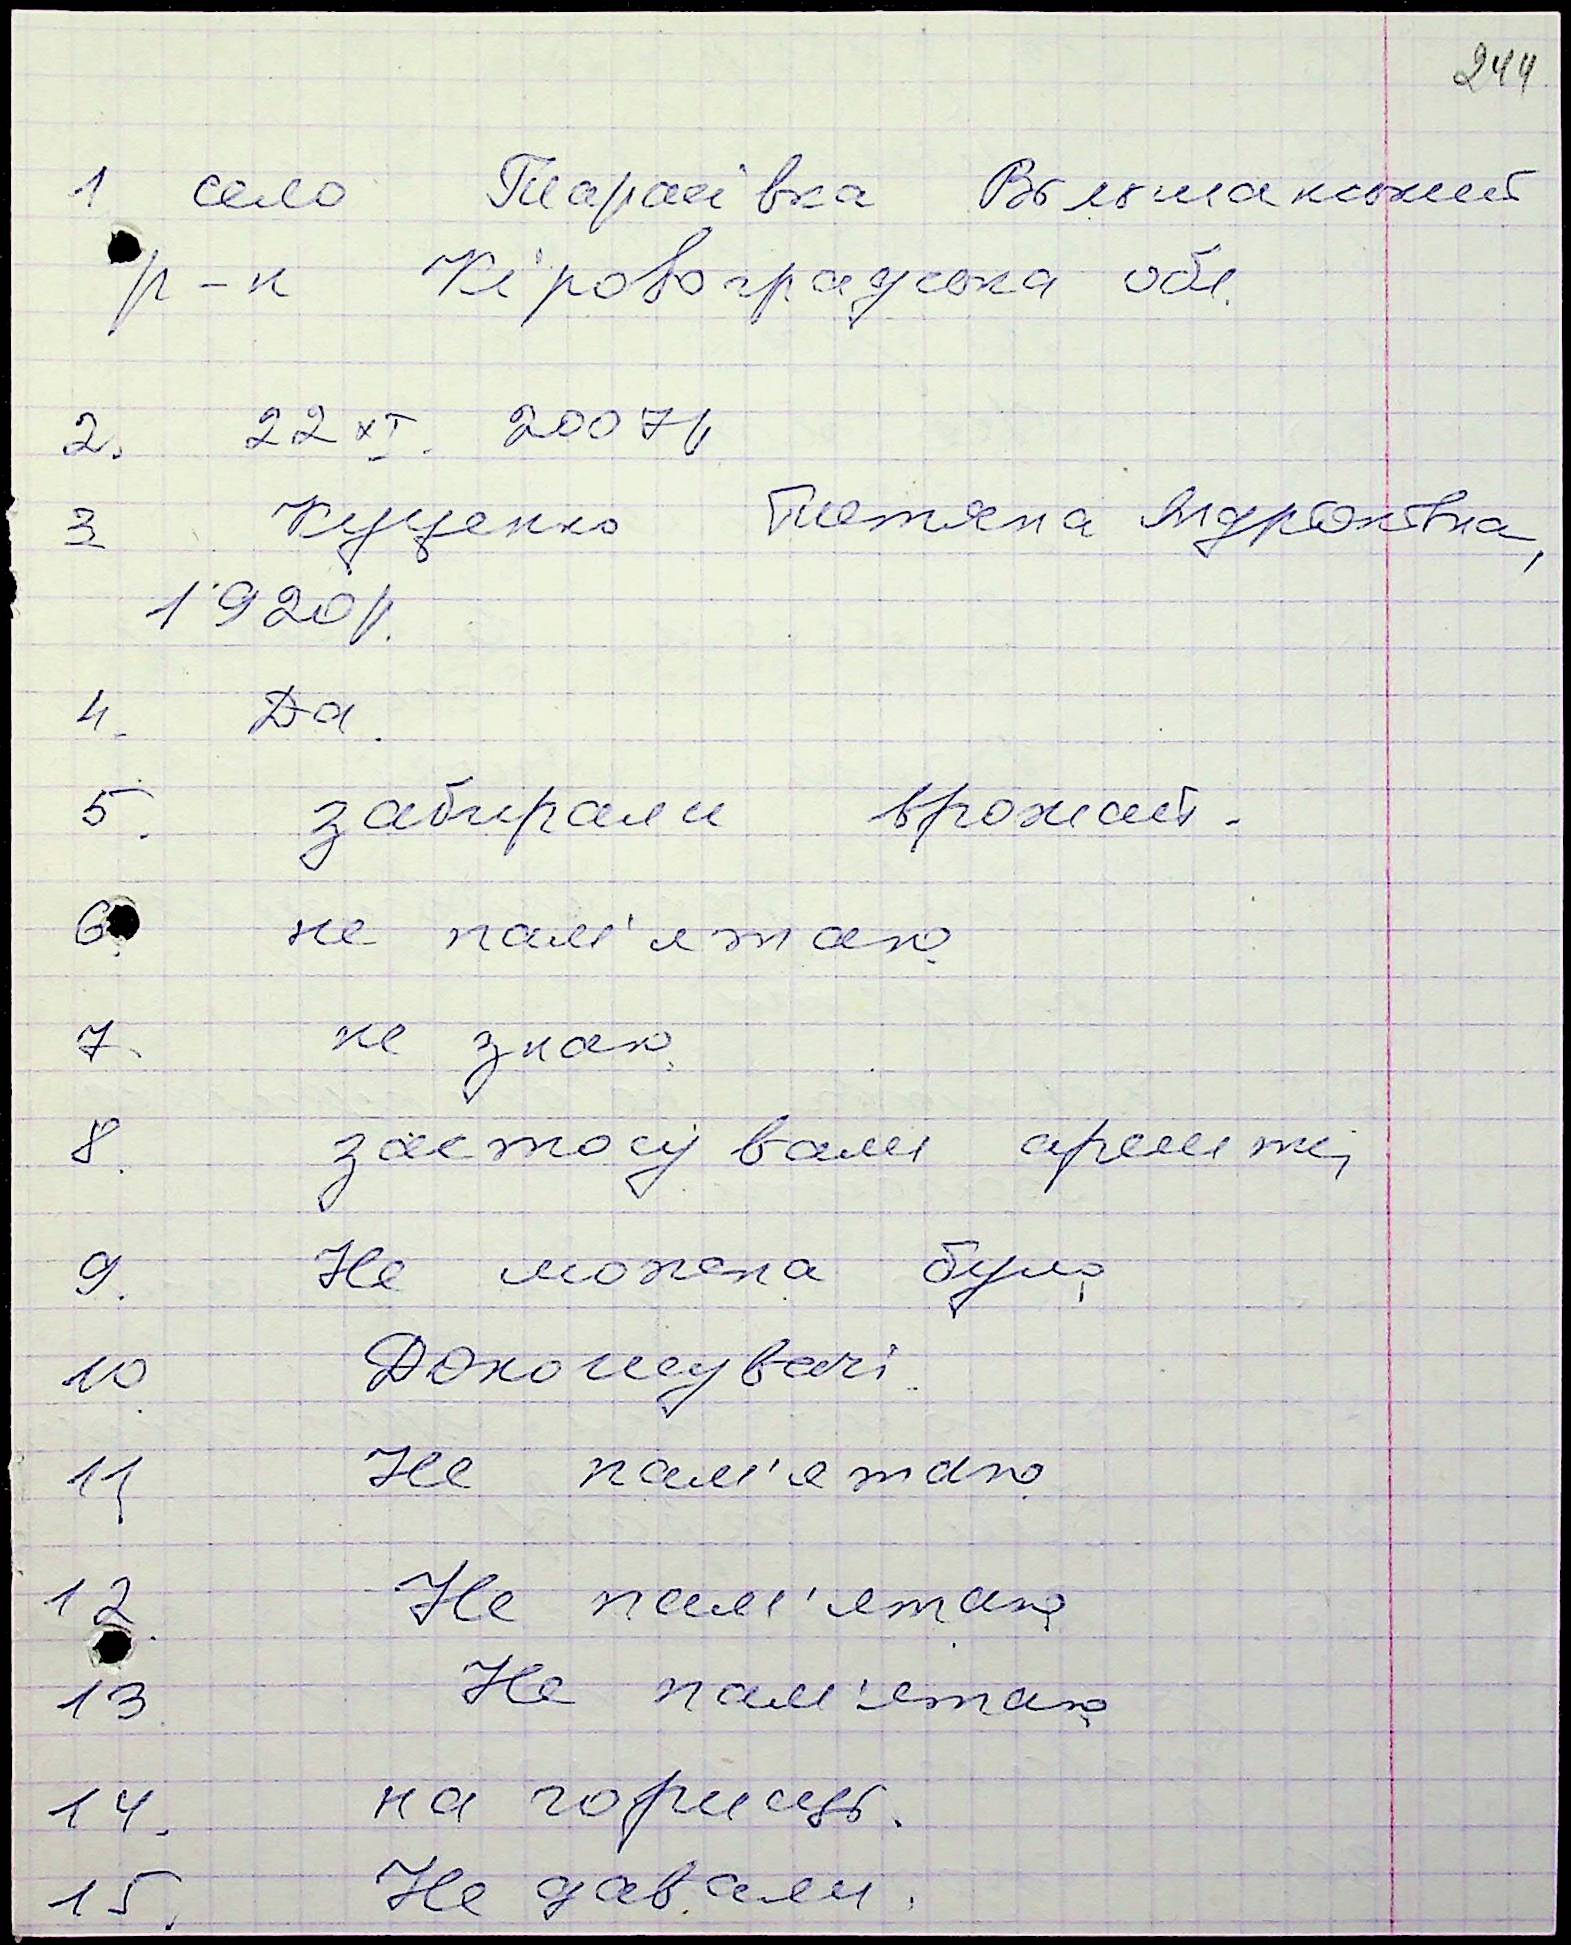 244
1 село Тарасівка Вільшанський
р-н Кіровоградська обл.
2. 22 XI. 2007р
3 Куценко Тетяна
1920р.
4. Да.
5. забирали врожай.
6. не пам'ятаю.
7. не знаю.
8. застосували арешти,
9. Не можна було,
10 Доношувачі.
11 Не пам'ятаю
12. Не пам'ятаю,
13 Не пам'ятаю,
14. на горищі.
15. Не давали.